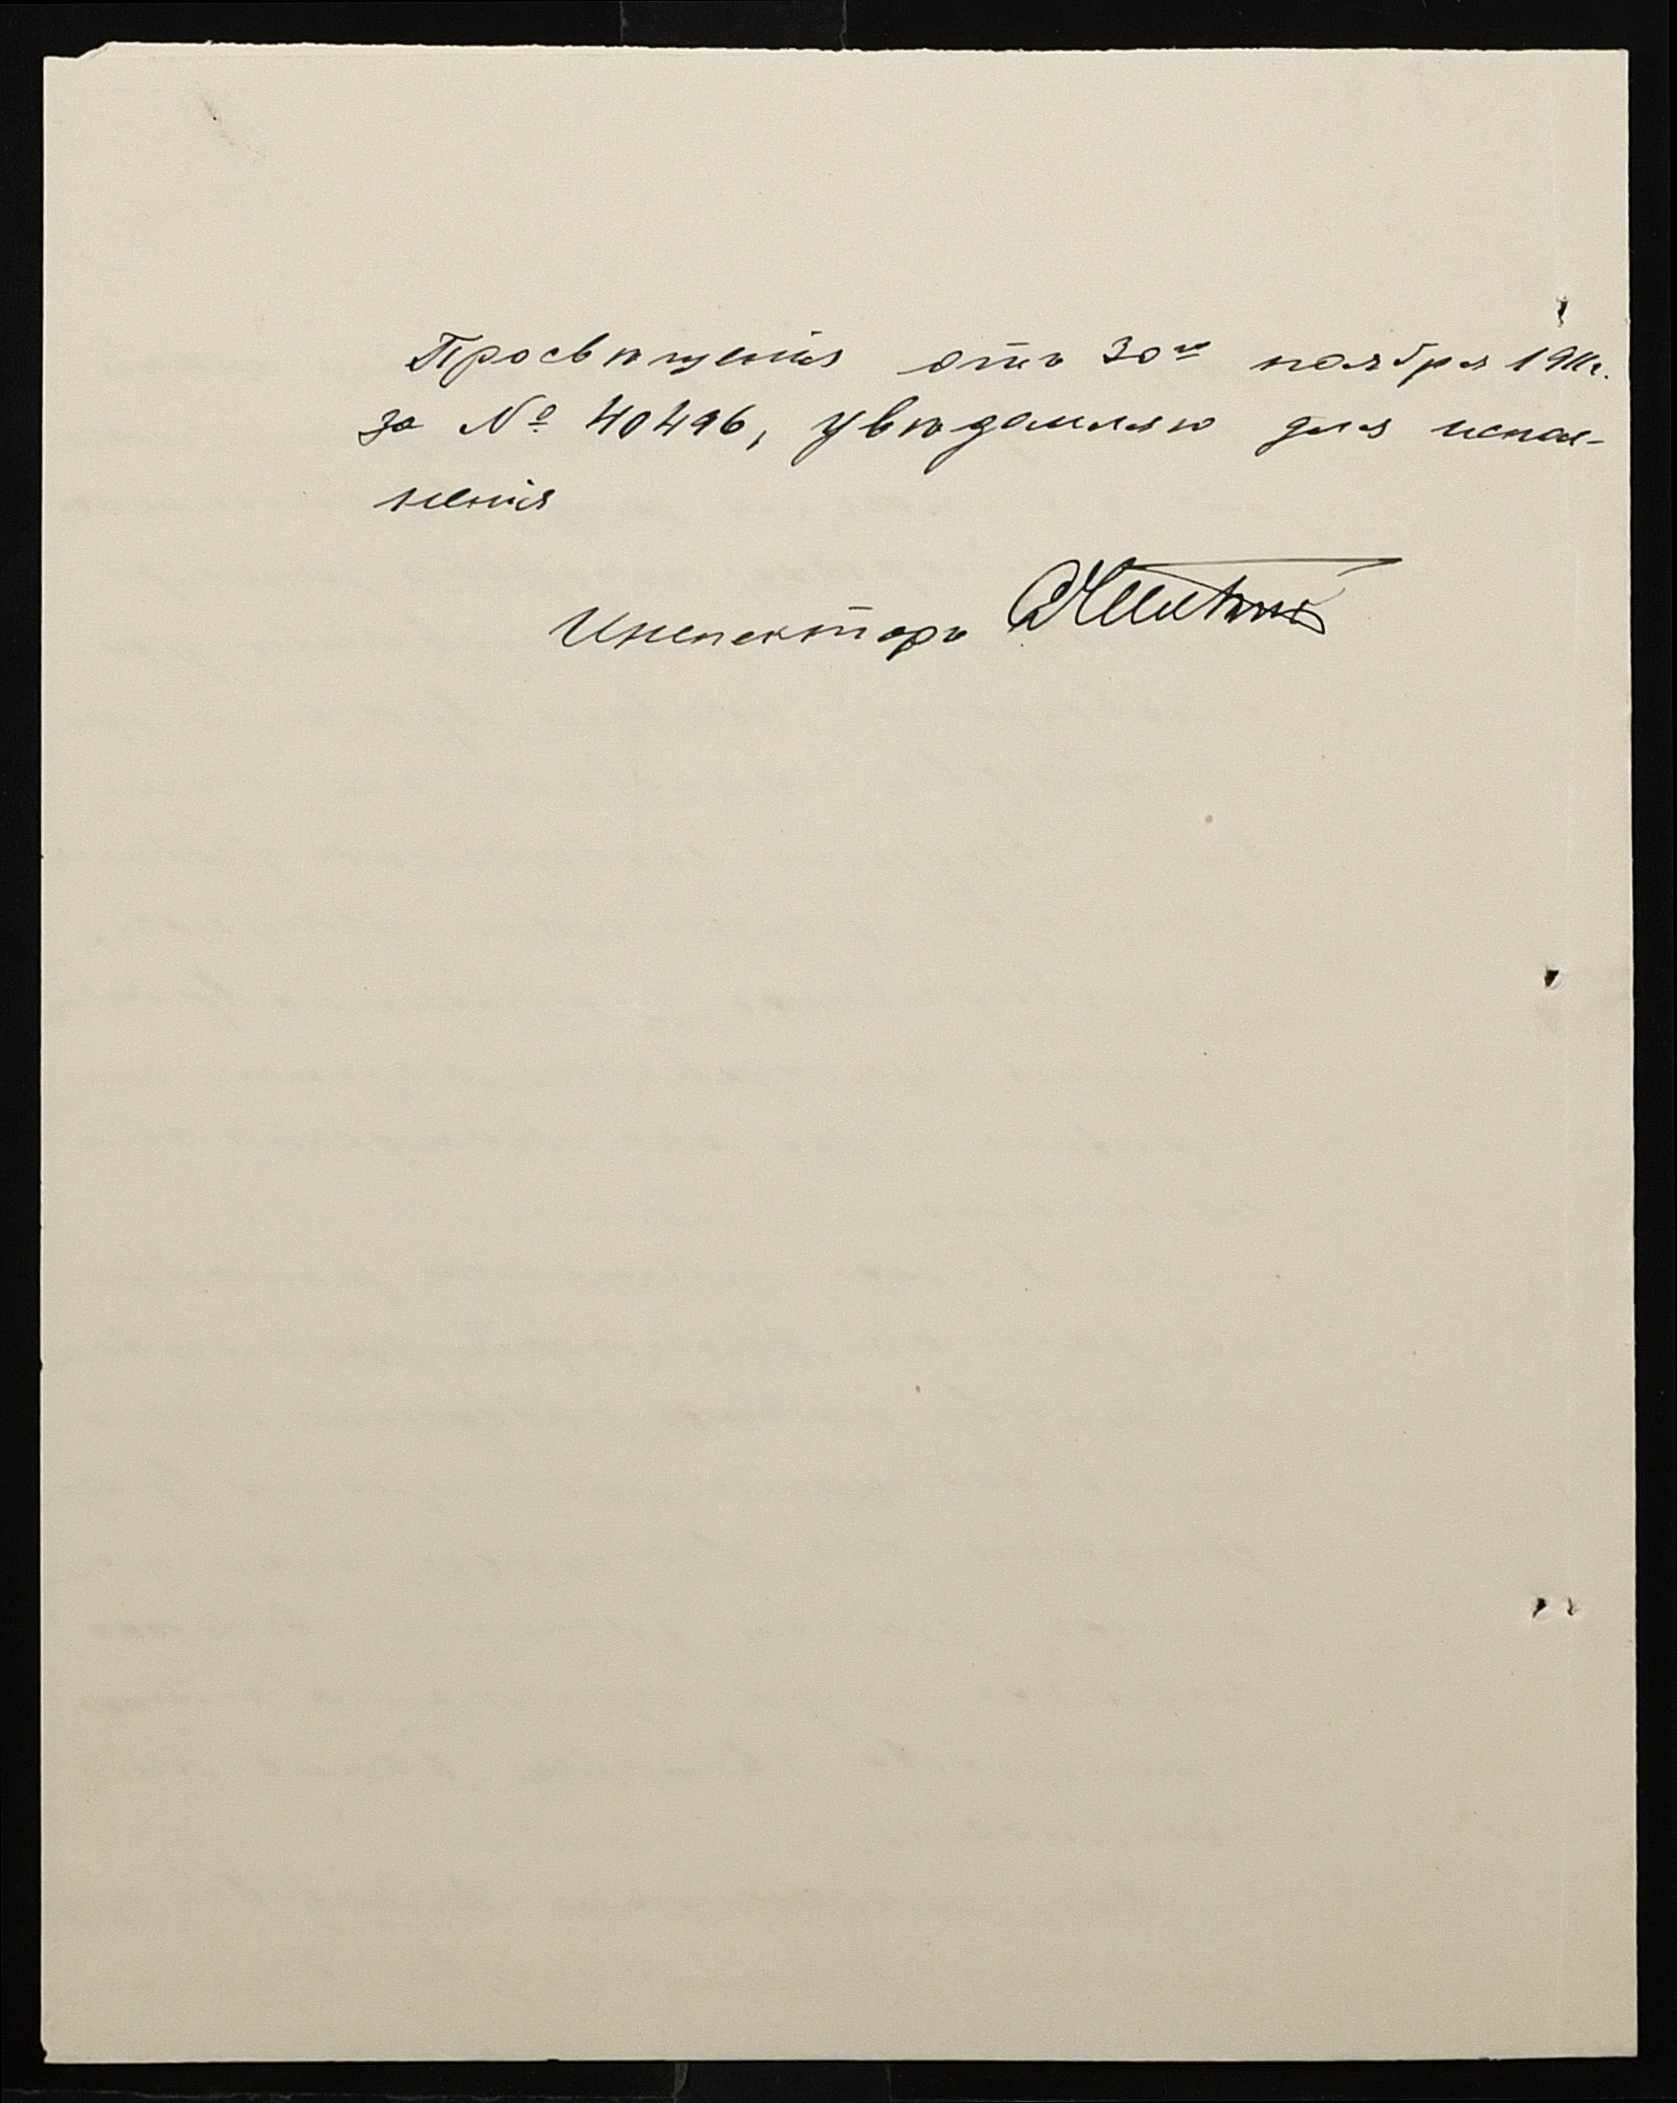 Просвѣщенія отъ 30го ноября 1911г.
за № 40496, увѣдомляю для испол-
ненія
Инспекторъ